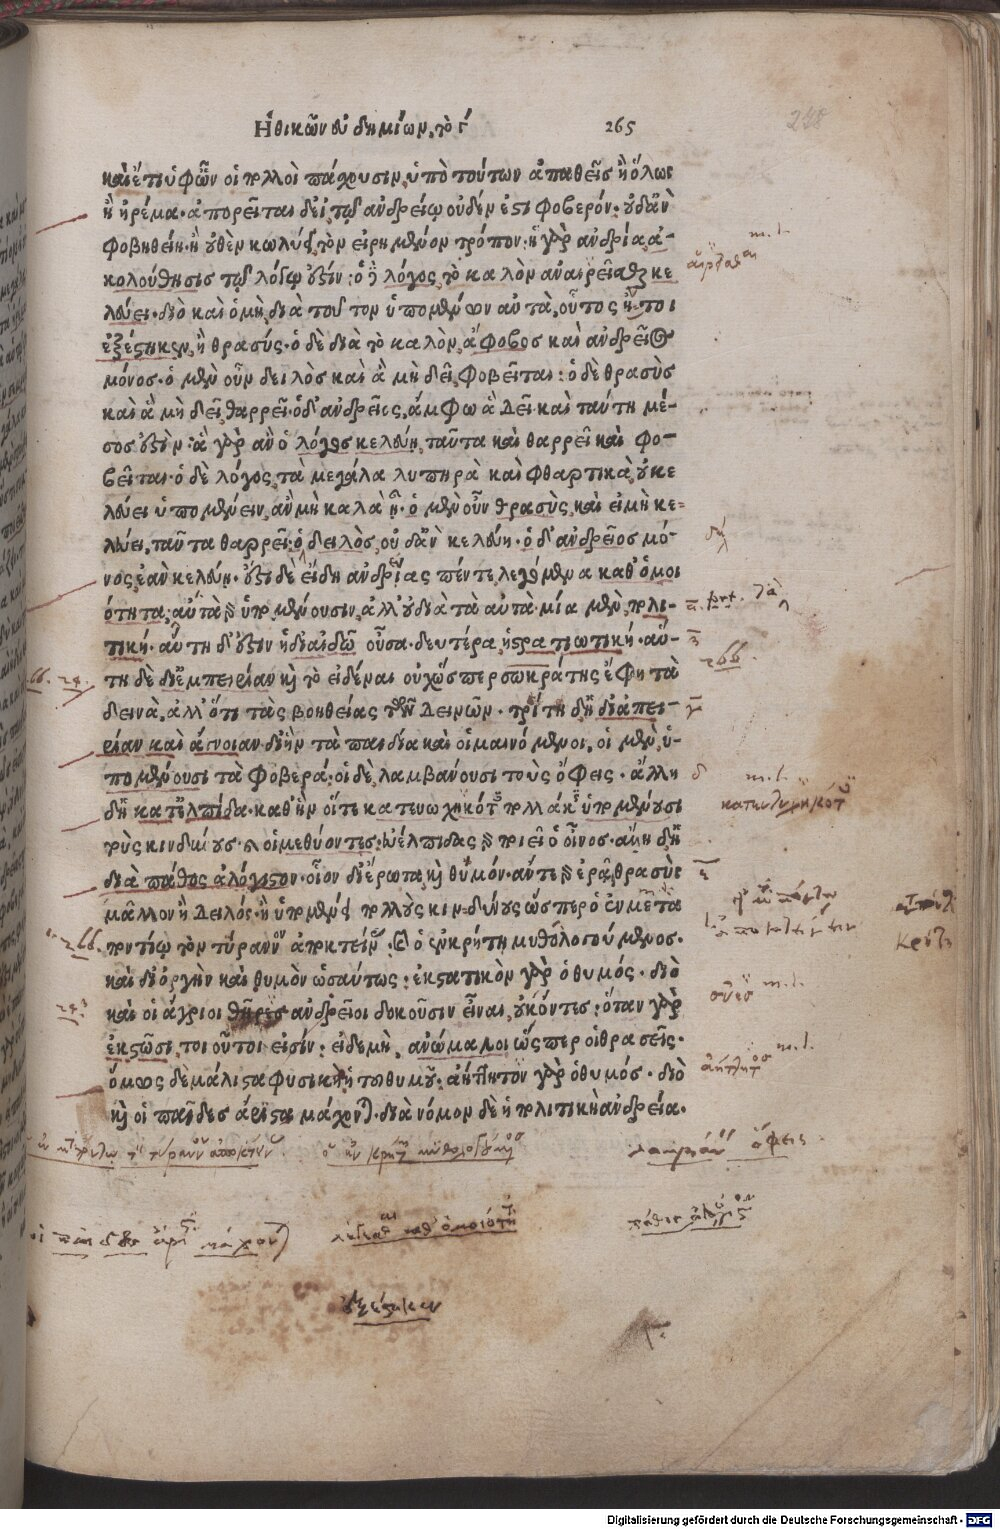 Ἠθικῶν εὐδημίων, τὸ γ 265
καὶ ἔτι ὑφ' ὧν οἱ πολλοὶ πάσχουσιν, ὑπὸ τούτων ἀπαθεῖς ἢ ὅλως
ἢ ἠρέμα. ἀπορεῖται δὲ εἰ τῷ ἀνδρείῳ οὐδέν ἐστι φοβερόν. οὐδ' ἂν
φοβηθείη. ἢ οὐθὲν κωλύει, τὸν εἰρημένον τρόπον. ἡ γὰρ ἀνδρία, ἀ-
κολούθησις τῷ λόγῳ ἐστίν: ὁ δὲ λόγος, τὸ καλὸν αἱρεῖσθαι κε
λεύει. διὸ καὶ ὁ μὴ διὰ τοῦτον ὑπομένων αὐτὰ, οὗτος ἤτοι
ἐξέστηκεν, ἢ θρασύς. ὁ δὲ διὰ τὸ καλὸν, ἄφοβος καὶ ἀνδρεῖος
μόνος. ὁ μὲν οὖν δειλὸς καὶ ἃ μὴ δεῖ, φοβεῖται: ὁ δὲ θρασὺς
καὶ ἃ μὴ δεῖ, θαρρεῖ. ὁ δ' ἀνδρεῖος, ἄμφω ἃ δεῖ. καὶ ταύτη μέ-
σος ἐστίν: ἃ γὰρ ἂν ὁ λόγος κελεύῃ, ταῦτα καὶ θαρρεῖ καὶ φο-
βεῖται. ὁ δὲ λόγος, τὰ μεγάλα λυπηρὰ καὶ φθαρτικὰ, οὐ κε
λεύει ὑπομένειν, ἂν μὴ καλὰ ᾖ. ὁ μὲν οὖν θρασὺς, καὶ εἰ μὴ κε-
λεύει, ταῦτα θαρρεῖ: ὁ δειλὸς, οὐδ' ἂν κελεύῃ. ὁ δ' ἀνδρεῖος μό-
νος, ἐὰν κελεύῃ. ἔστι δὲ εἴδη ἀνδρείας πέντε λεγόμενα καθ' ὁμοι
ότητα. αὐτὰ γὰρ ὑπομένουσιν, ἀλλ' οὐ διὰ τὰ αὐτὰ. μία μὲν, πολι-
τική. αὕτη δ' ἐστὶν ἡ δι' αἰδῶ οὖσα. δευτέρα, ἡ στρατιωτική. αὕ-
τη δὲ δι' ἐμπειρίαν καὶ τὸ εἰδέναι οὐχ ὥσπερ σωκράτης ἔφη τὰ
δεινὰ, ἀλλ' ὅτι τὰς βοηθείας τῶν δεινῶν. τρίτη δ' ἡ δι' ἀπει-
ρίαν καὶ ἄγνοιαν. δι' ἣν τὰ παιδία καὶ οἱ μαινόμενοι, οἱ μὲν, ὑ-
πομένουσι τὰ φοβερά: οἱ δὲ, λαμβάνουσι τοὺς ὄφεις. ἄλλη
δ' ἡ κατ' ἐλπίδα. καθ' ἣν οἵ τε κατευτυχηκότες πολλάκις ὑπομένουσι
τοὺς κινδύνους. καὶ οἱ μεθύοντες: εὐέλπιδας γὰρ ποιεῖ ὁ οἶνος. ἄλλη δ' ἡ
διὰ πάθος ἀλόγιστον. οἷον δι' ἔρωτα, καὶ θυμόν. ἄν τε γὰρ ἐρᾷ, θρασὺς
μᾶλλον ἢ δειλός. ἢ ὑπομένει πολλοὺς κινδύνους ὥσπερ ὁ ἐν μετα
ποντίῳ τὸν τύραννον ἀποκτείνας: καὶ ὁ ἐν κρήτῃ μυθολογούμενος.
καὶ δι' ὀργὴν καὶ θυμὸν ὡσαύτως: ἐκστατικὸν γὰρ ὁ θυμός. διὸ
καὶ οἱ ἄγριοι θῆρες ἀνδρεῖοι δοκοῦσιν εἶναι, οὐκ ὄντες: ὅταν γὰρ
ἐκστῶσι, τοιοῦτοι εἰσίν: εἰ δὲ μὴ, ἀνώμαλοι ὥσπερ οἱ θρασεῖς.
ὅμως δὲ μάλιστα φυσικὴ ἡ τοῦ θυμοῦ. ἀήττητον γὰρ ὁ θυμός. διὸ
καὶ οἱ παῖδες ἄριστα μάχονται. διὰ νόμον δὲ ἡ πολιτικὴ ἀνδρεία.
λαμβάνουσι ὄφεις
λέγεται καθ' ὁμοιότητα
πάθος ἀλόγιστον
οἱ παῖδες ἄριστα μάχονται
ἐξέστηκεν
Digitalisierung gefördert durch die Deutsche Forschungsgemeinschaft - DFG